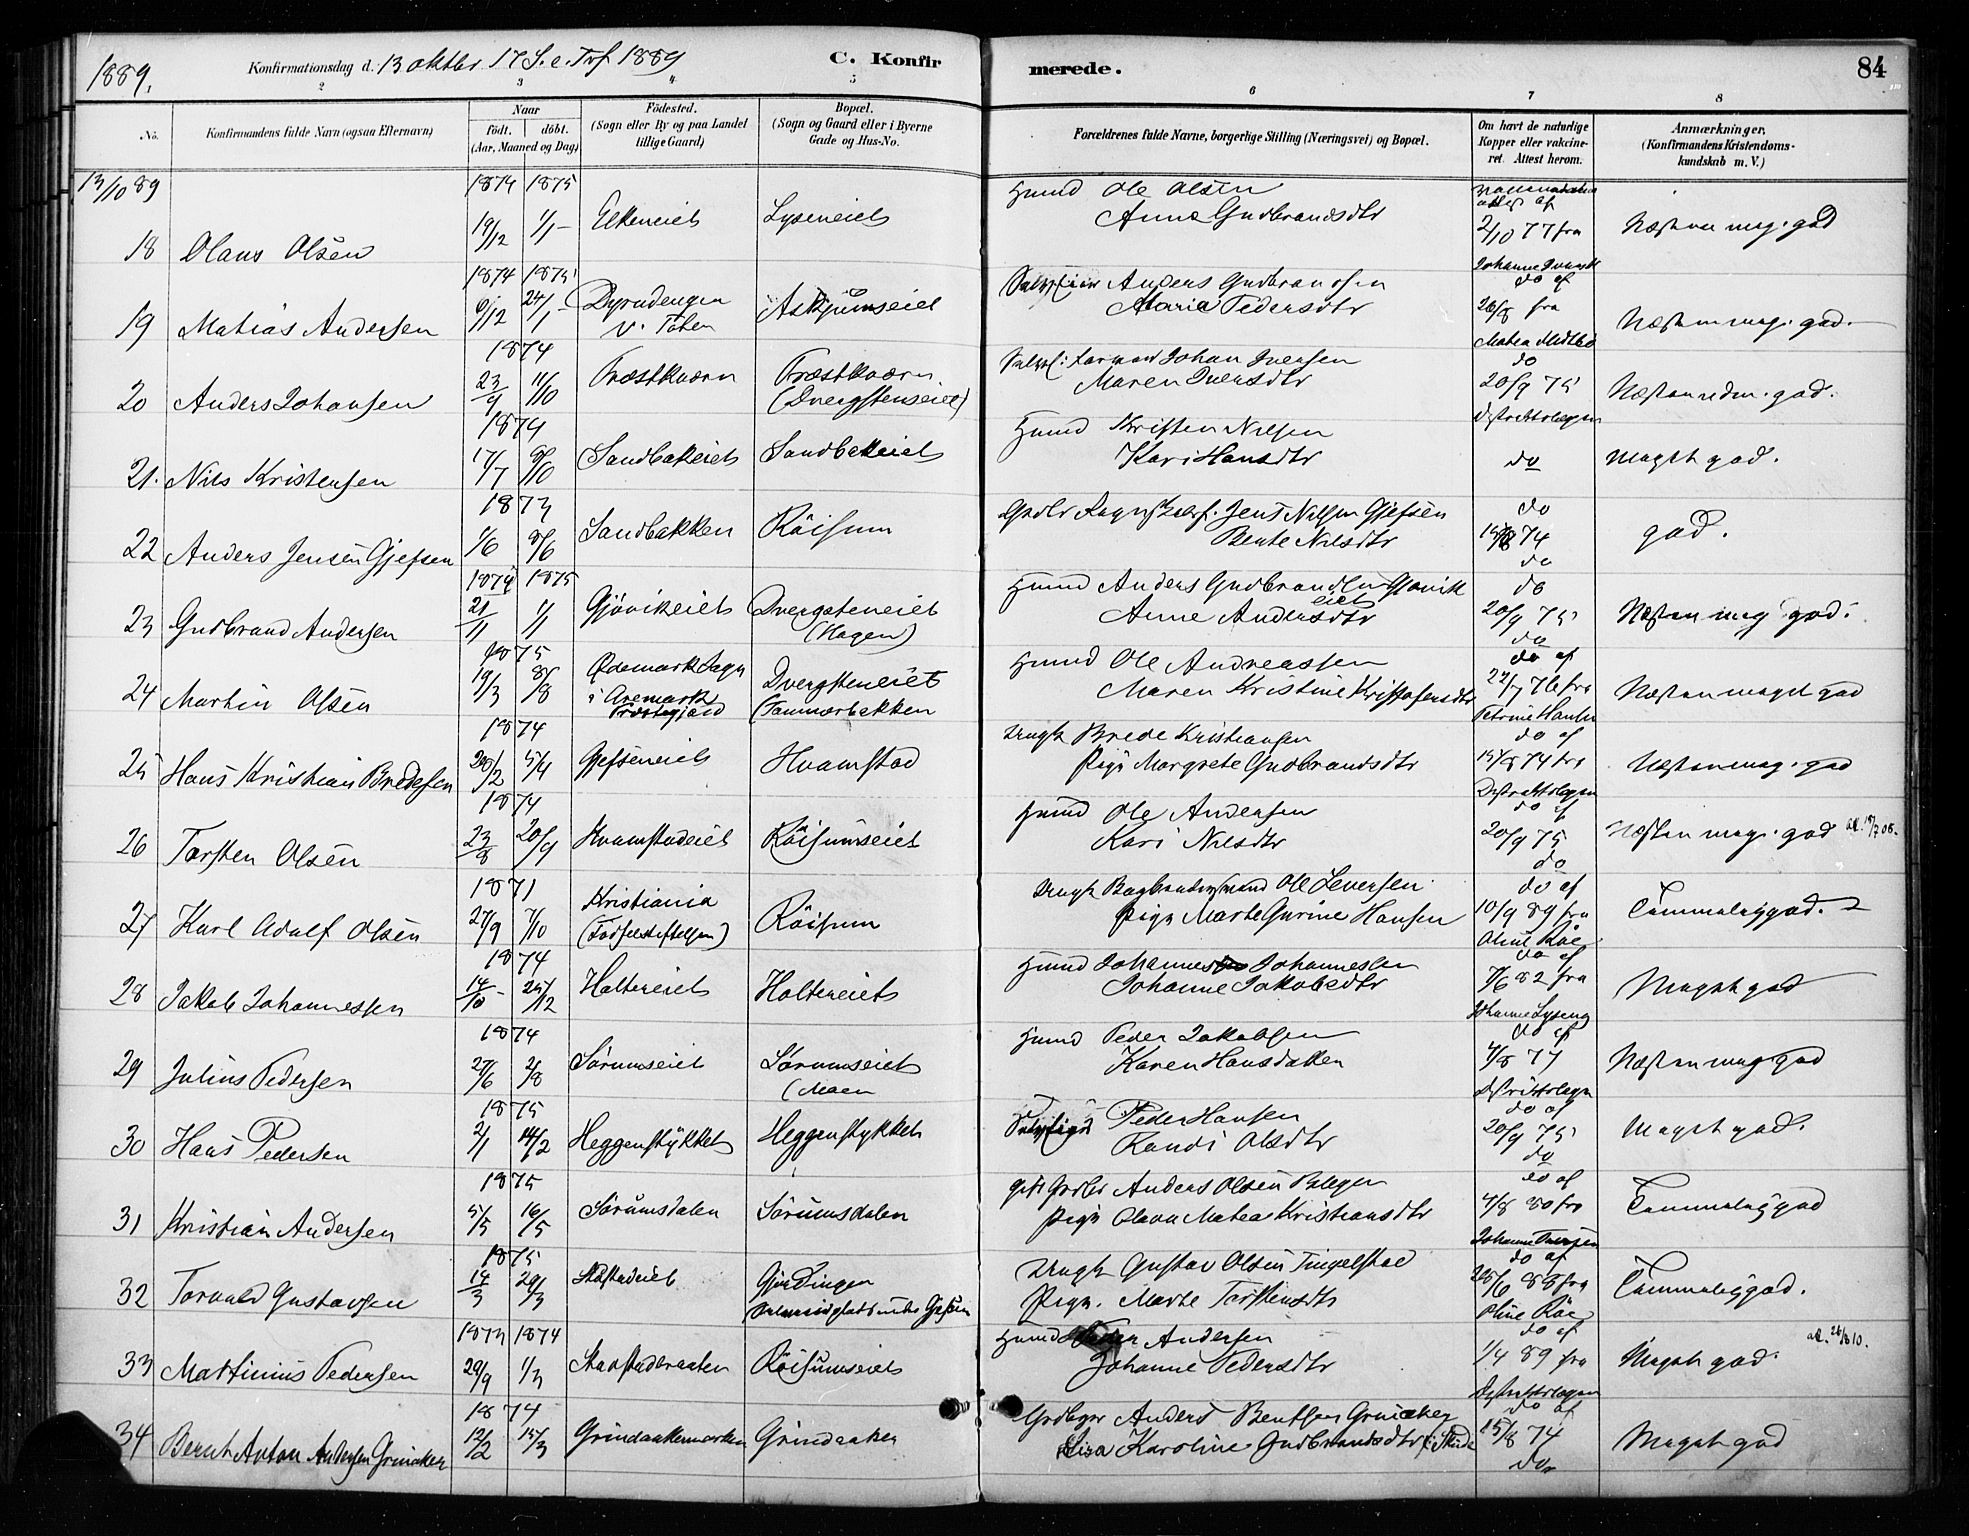 1889.
Konfirmationsdag d. 13 oktbr 17 S. e. Tref 1889
C. Konfir
merede.
84
2 3 4 5 6 7 8
No.
Konfirmandens fulde Navn (ogsaa Efternavn)
Naar
født. døbt.
(Aar, Maaned og Dag)
Fødested.
(Sogn eller By og paa Landet
tillige Gaard)
Bopæl.
(Sogn og Gaard eller i Byerne
Gade og Hus-No.
Forældrenes fulde Navne, borgerlige Stilling (Næringsvei) og Bopæl.
Om havt de naturlige
Kopper eller vakcine-
ret. Attest herom.
Anmærkninger,
(Konfirmandens Kristendoms-
kundskab m. V.)
13/10 89
18 Olaus Olsen 1874 19/12 1875 1/1 Elkeneiet Lyseneiet
Husmd Ole Olsen
Anne Gudbrandsdtr
2/10 77 fra
Næsten meg. god
19 Matias Andersen 1874 6/12 1875 24/1 Dyrudengen
V. Toten
Askjumseiet
Selveier Anders Gudbrandsen
Maria Pedersdtr
do af
26/8 fra
Næsten meg. god.
20 Anders Johansen 1874 23/9 11/10 Præstkværn Præstkværn
(Dvergstenseiet)
Johan Iversen
Maren Iversdtr
do
20/9 75
Distriktslægen
Næsten udm. god.
21. Nils Kristensen 1874 17/7 Sandbakeiet Sandbakeiet
Husmd Kristen Nilsen
Kari Hansdtr
do
Meget god.
22 Anders Jensen Gjefsen 1873 1/6 8/6 Sandbakken Röisum
Jens Nilsen Gjefsen
Bente Nilsdtr
do
15/8 74
do
god.
23 Gudbrand Andersen 1874 21/11 1875 1/1 Gjövikeiet Dvergsteneiet
(Hagen)
Husmd Anders Gudbrandsen Gjövik
eiet
Anne Andersdtr
do
20/9 75
do
Næsten meg god.
24 Martin Olsen 1875 19/3 8/8 Ødemark Sogn
i Aremark
Præstegjæld
Dvergsteneiet
(Tømmerbakken
Husmd Ole Andreassen
Maren Kristine Kristofersdtr
do af
27/7 76 fra
Petrine Hansen
Næsten meget god
25 Hans Kristian Bredesen 1874 20/2 5/4 Gjefseneiet Hvamstad
Ungk Brede Kristiansen
Pige Margrete Gudbrandsdtr
do af
15/8 74 fra
Distriktslægen
Næsten meg. god
26 Torsten Olsen 1874 23/8 20/9 Hvamstadeiet Röisumseiet
Husmd Ole Andersen
Kari Nilsdtr
do af
20/9 75
do
Næsten meg. god att. 18/7 08.
27 Karl Adolf Olsen 1871 27/9 7/10 Kristiania
(Fødselsstiftelsen)
Röisum
Ungk Bogbindersvend Ole Seversen
Pige Marte Gurine Hansen
do af
10/9 89 fra
Oline Röe
Temmelig god.
28 Jakob Johannessen 1874 14/10 25/12 Haltereiet Haltereiets
Husmd Johannes Johannessen
Johanne Jakobsdtr
do af
7/6 82 fra
Johanne Lyseng
Meget god
29 Julius Pedersen 1874 27/6 2/8 Sørumseiet Sørumseiet
(Moen
Husmd Peder Jakobsen
Karen Hansdatter
do af
4/8 77
Distriktslægen
Næsten meg god
30 Hans Pedersen 1875 2/1 14/2 Heggenstykket Heggenstykket
Selveier Peder Hansen
Randi Olsdtr
do af
20/9 75
do
Meget god.
31 Kristian Andersen 1875 5/5 16/5 Sørumsdalen Sørumsdalen
Anders Olsen
Pige Olava Matea Kristiansdtr
do af
4/8 80 fra
Johanne Iversen
Temmelig god
32 Torvald Gustavsen 1875 14/3 29/3 Skøstadeiet Gjerdingen
Ungk Gustav Olsen Tingelstad
Pige. Marte Torstensdtr
do af
25/6 88 fra
Oline Röe
Temmelig god.
33 Martinius Pedersen 1873 29/9 1874 1/3 Röisumseiet
Husmd Peder Andersen
Johanne Pedersdtr
do af
1/4 89 fra
Distriktslægen
Meget god. att. 26/8 10.
34 Bernt Anton Andersen Grinaker 1874 12/2 15/3 Grindakermarken Grindaaker
Grdbger Anders Bentsen Grinaker
Lisa Karoline Gudbrandsdtr
do af
15/8 74
do
Meget god